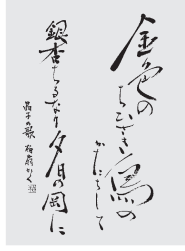 金色の
ちひさき鳥の
かたちして
銀杏ちるなり
夕日の岡に
晶子の歌
かく